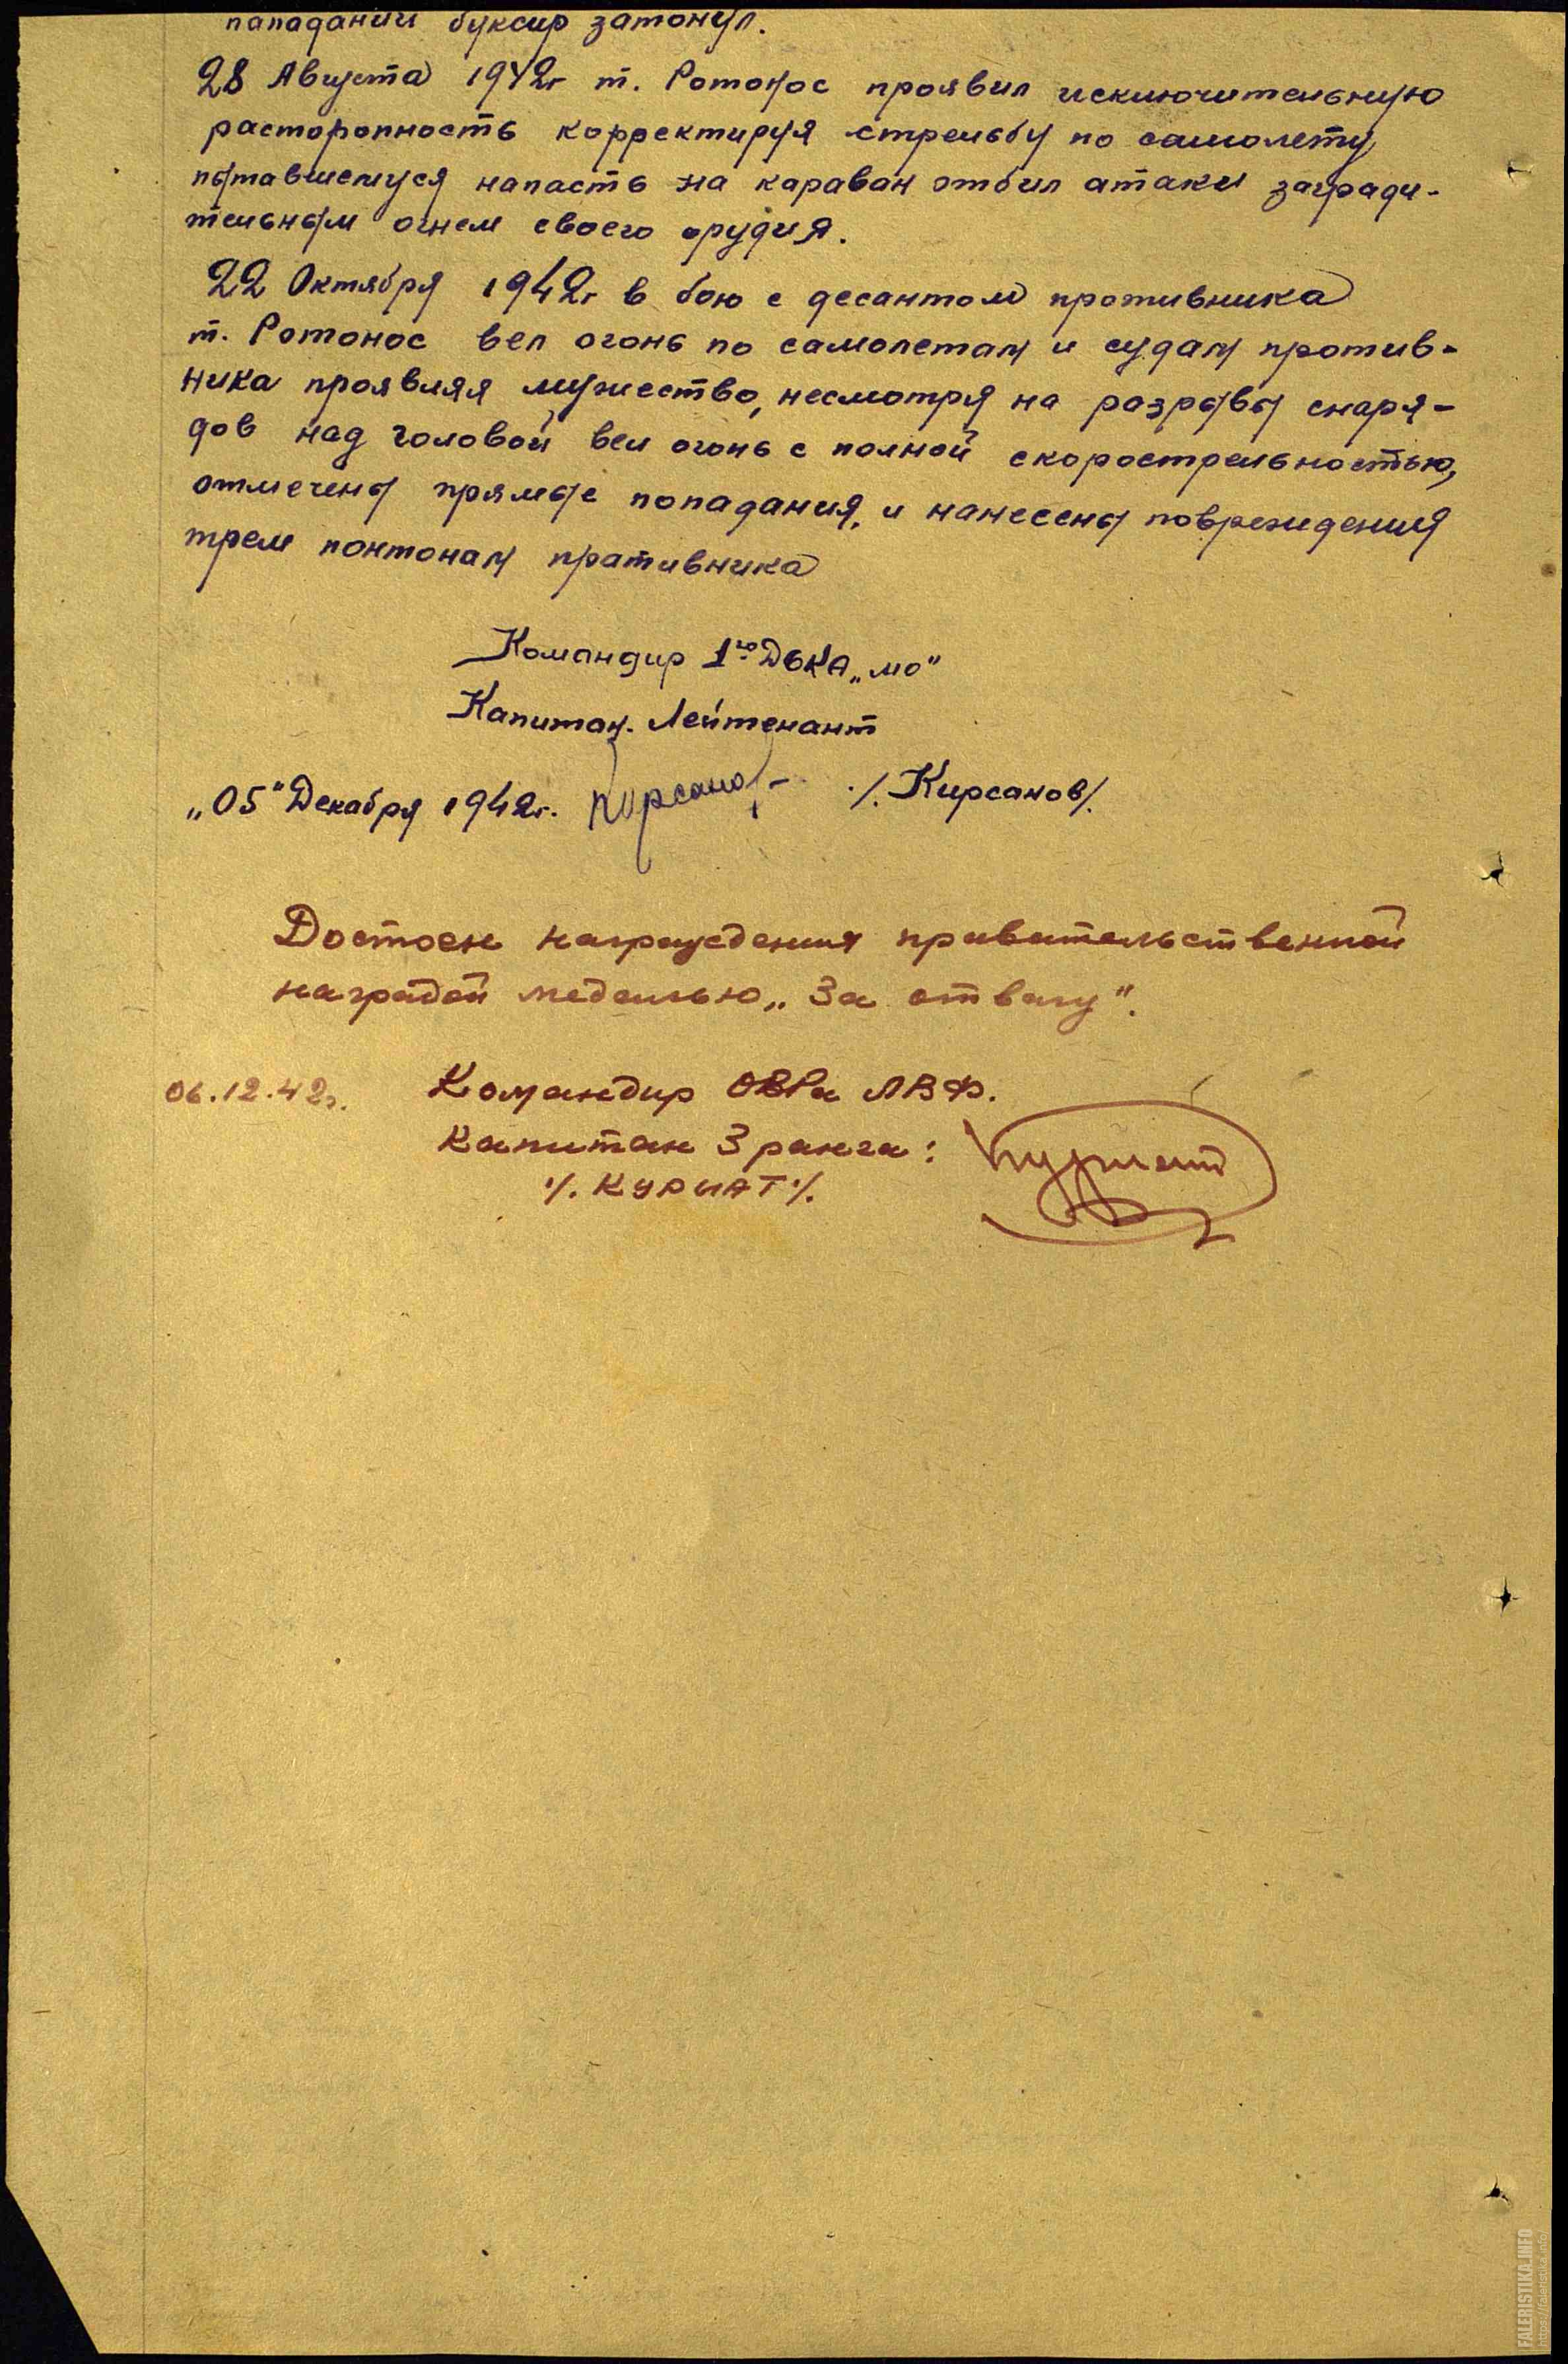 попадании буксир затонул.
28 Августа 1942г т. Ротонос проявил исключительную
расторопность корректируя стрельбу по самолету,
пытавшемуся напасть на караван отбил атаки загради-
тельным огнем своего орудия.
22 Октября 1942г в бою с десантом противника
т. Ротонос вел огонь по самолетам и судам против-
ника проявляя мужество, несмотря на разрывы снаря-
дов над головой вел огонь с полной скорострельностью,
отмечены прямые попадания, и нанесены повреждения
трем понтонам пративника
Командир 1го ДСКА „МО"
Капитан. Лейтенант
„05" Декабря 1942г. Кирсанов ./. Кирсанов/.
Достоен награждения правительственной
наградой медалью „За отвагу".
06.12.42г. Командир ОВРа ЛВФ.
Капитан 3 ранга: Курмат
./. КУРМАТ ./.
FALERISTIKA.INFO